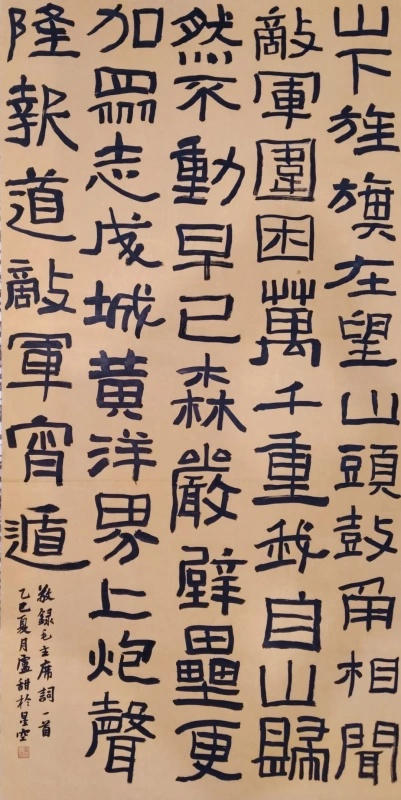 山下旌旗在望山頭鼓角相聞
敵軍圍困萬千重我自巋
然不動早已森嚴壁壘更
加眾志成城黃洋界上炮聲
隆報道敵軍宵遁
敬錄毛主席詞一首
乙巳夏月盧甜於星空